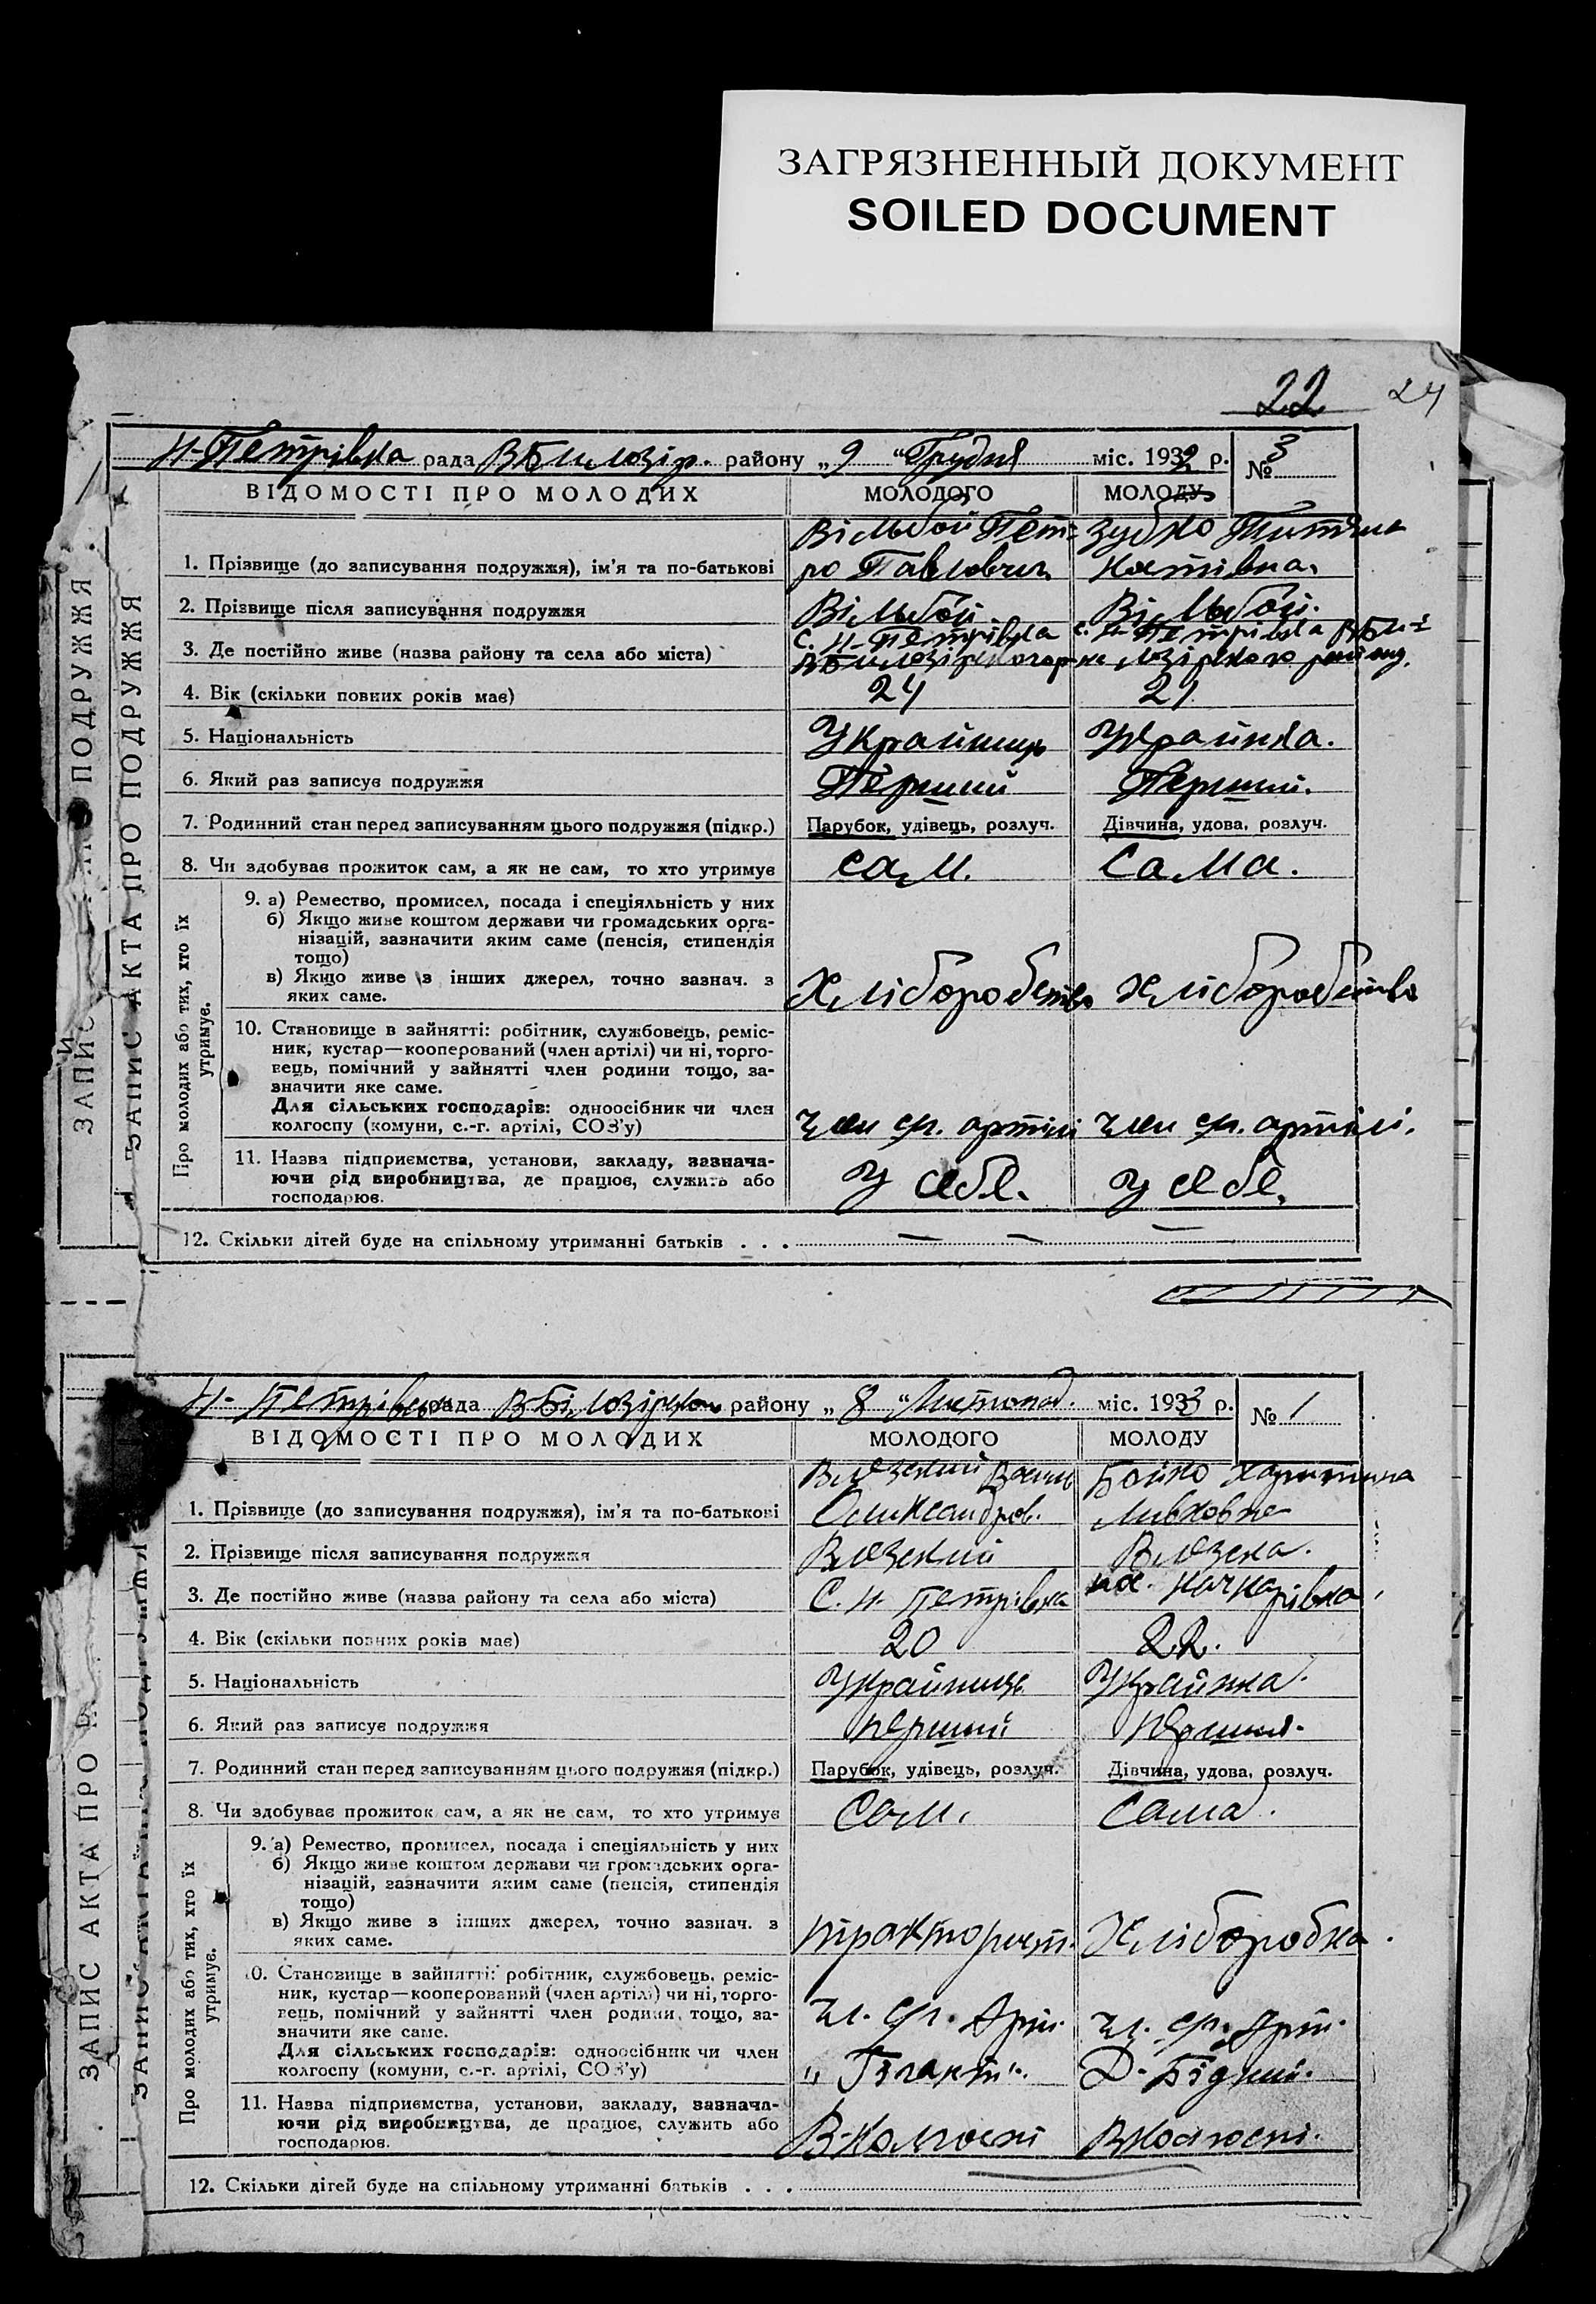 ЗАГРЯЗНЕННЫЙ ДОКУМЕНТ
SOILED DOCUMENT
22 24
Н-Петрівка рада ВБілозір. району „9 “ Грудня міс. 1932 р. № 3
ВІДОМОСТІ ПРО МОЛОДИХ МОЛОДОГО МОЛОДУ
Вільбой Пет= Зубко Титяна
1. Прізвище (до записування подружжя), ім’я та по-батькові ро Павлович
2. Прізвище після записування подружжя Вільбой. Вільбой.
с. Н-Петрівка с. Н-Петрівка ВБі-
3. Де постійно живе (назва району та села або міста) лозірського району.
4. Вік (скільки повних років має) 24 21
5. Національність Українець Українка.
6. Який раз записує подружжя Перший Перший.
7. Родинний стан перед записуванням цього подружжя (підкр.) Парубок, удівець, розлуч. Дівчина, удова, розлуч.
8. Чи здобуває прожиток сам, а як не сам, то хто утримує сам. Сама.
Про молодих або тих, хто їх утримує.
9. а) Ремество, промисел, посада і спеціяльність у них
б) Якщо живе коштом держави чи громадських орга-
нізацій, зазначити яким саме (пенсія, стипендія
тощо)
в) Якщо живе з інших джерел, точно зазнач. з
яких саме. Хліборобство Хліборобство
10. Становище в зайнятті: робітник, службовець, реміс-
ник, кустар—кооперований (член артілі) чи ні, торго-
вець, помічний у зайнятті член родини тощо, за-
значити яке саме.
Для сільських господарів: одноосібник чи член
колгоспу (комуни, с.-г. артілі, СОЗ’у) член с/г. артілі член с/г. артілі.
11. Назва підприємства, установи, закладу, зазнача-
ючи рід виробництва, де працює, служить або
господарює. У себе. У себе.
12. Скільки дітей буде на спільному утриманні батьків . . . — — —
ЗАПИС АКТА ПРО ПОДРУЖЖЯ
Н- Петрівськ рада ВБілозірка району „8 “ Листопад. міс. 1933 р. № 1
ВІДОМОСТІ ПРО МОЛОДИХ МОЛОДОГО МОЛОДУ
Василь Бойко Харитина
1. Прізвище (до записування подружжя), ім’я та по-батькові Олександров.
2. Прізвище після записування подружжя
3. Де постійно живе (назва району та села або міста) С. Н- Петрівка Качкарівка
4. Вік (скільки повних років має) 20 22.
5. Національність Українець Українка.
6. Який раз записує подружжя перший перший.
7. Родинний стан перед записуванням цього подружжя (підкр.) Парубок, удівець, розлуч. Дівчина, удова, розлуч.
8. Чи здобуває прожиток сам, а як не сам, то хто утримує Сам. Сама.
Про молодих або тих, хто їх утримує.
9. а) Ремество, промисел, посада і спеціяльність у них
б) Якщо живе коштом держави чи громадських орга-
нізацій, зазначити яким саме (пенсія, стипендія
тощо)
в) Якщо живе з інших джерел, точно зазнач. з
яких саме. тракторист. Хліборобка.
10. Становище в зайнятті: робітник, службовець, реміс-
ник, кустар—кооперований (член артілі) чи ні, торго-
вець, помічний у зайнятті член родини, тощо, за-
значити яке саме. чл. с/г. Арт. чл. с/г. Арт.
Для сільських господарів: одноосібник чи член
колгоспу (комуни, с.-г. артілі, СОЗ’у) „Гігант“. Д-Бідний.
11. Назва підприємства, установи, закладу, зазнача-
ючи рід виробництва, де працює, служить або
господарює. В-Колгоспі Вколгоспі.
12. Скільки дітей буде на спільному утриманні батьків . . .
ЗАПИС АКТА ПРО